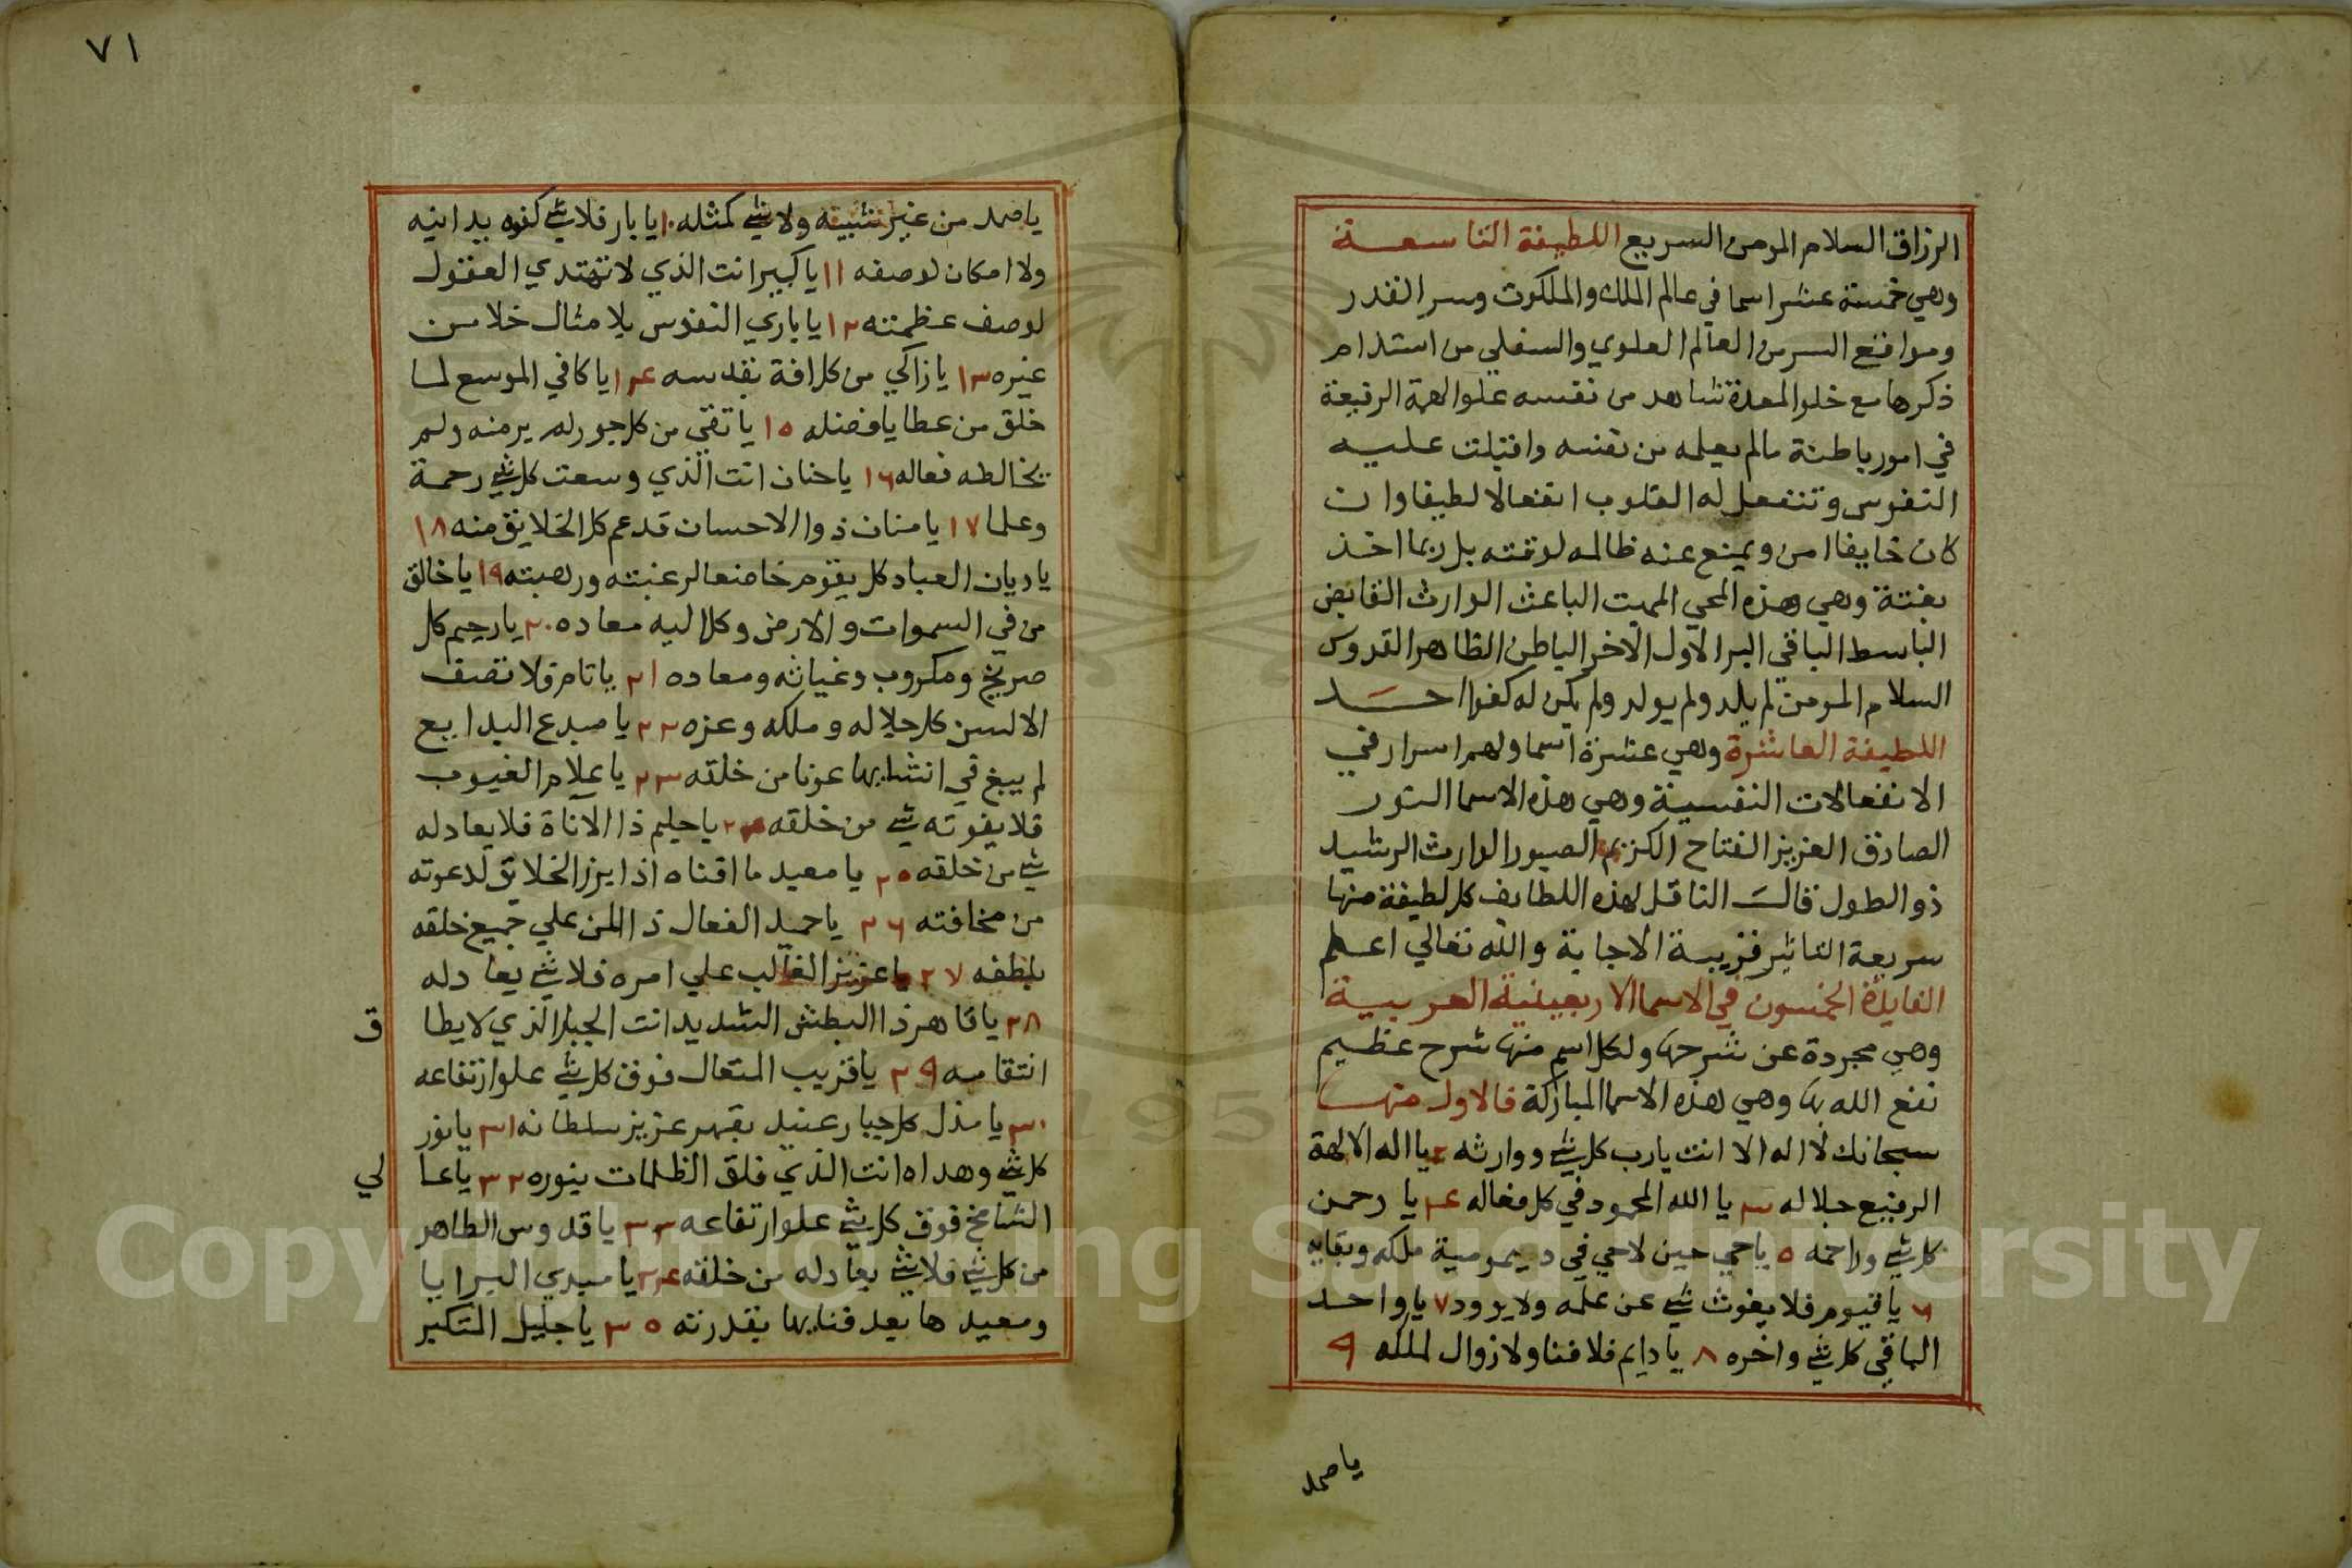 الرزاق السلام المومن السريع اللطيفة التاسعة
وهي خمسة عشر اسما في عالم الملك والملكوت وسر القدر
ومواقع السر من العالم العلوي والسفلي من استدام
ذكرها مع خلو المعدة شاهد من نفسه علو الهمة الرفيعة
في امور باطنة مالم يعلمه من نفسه واقبلت عليه
النفوس وتنفعل له القلوب انفعالا لطيفا وان
كان خايفا امن ويمنع عنه ظالمه لوقته بل ربما اخذ
بغتة وهي وهذه المحي المميت الباعث الوارث القابض
الباسط الباقي البر الاول الاخر الباطن الظاهر القدوس
السلام المومن لم يلد ولم يولد ولم يكن له كفوا احد
اللطيفة العاشرة وهي عشرة اسما ولهم اسرار في
الانفعالات النفسية وهي هذه الاسما النور
الصادق العزيز الفتاح الكريم الصبور الوارث الرشيد
ذو الطول قال الناقل لهذه اللطايف كل لطيفة منها
سريعة التاثير قريبة الاجابة والله تعالي اعلم
الفايدة الخمسون في الاسما الاربعينية العربية
وهي مجردة عن شرحها ولكل اسم منها شرح عظيم
نفع الله بها وهي هذه الاسما المباركة فالاول منها
سبحانك لا اله الا انت يارب كل شي ووارثه ٢ يا اله الالهة
الرفيع جلاله ٣ يا الله المحمود في كل فعاله ٤ يا رحمن
كل شي وراحمه ٥ ياحي حين لاحي في ديمومية ملكه وبقايه
٦ ياقيوم فلا يفوت شي عن علمه ولا يرود ٧ يا واحد
الباقي كل شي واخره ٨ يا دايم فلا فنا ولا زوال لملكه ٩
ياصمد
٧١
ياصمد من غير شبيه ولا شي كمثله ١٠ يا بار فلا شي كفوه يدانيه
ولا امكان لوصفه ١١ يا كبير انت الذي لا تهتدي العقول
لوصف عظمته ١٢ يا باري النفوس بلا مثال خلا من
غيره ١٣ يا زاكي من كل افة بقدسه ١٤ يا كافي الموسع لما
خلق من عطايا فضله ١٥ يا نقي من كل جور لم يرضه ولم
يخالطه فعاله ١٦ يا حنان انت الذي وسعت كل شي رحمة
وعلما ١٧ يا منان ذوا الاحسان قد عم كل الخلايق منه ١٨
يا ديان العباد كل يقوم خاضعا لرغبته ورهبته ١٩ يا خالق
من في السموات والارض وكل اليه معاده ٢٠ يا رحيم كل
صريخ ومكروب وغياثه ومعاده ٢١ يا تام فلا تصف
الالسن كل جلاله وملكه وعزه ٢٢ يا مبدع البدايع
لم يبغ في انشايها عونا من خلقه ٢٣ يا علام الغيوب
فلا يفوته شي من خلقه ٢٤ يا حليم ذا الاناة فلا يعادله
شي من خلقه ٢٥ يا معيد ما افناه اذا برز الخلايق لدعوته
من مخافته ٢٦ يا حميد الفعال ذا المن علي جميع خلقه
بلطفه ٢٧ يا عزيز الغالب علي امره فلا شي يعادله
٢٨ يا قاهر ذا البطش الشديد انت الجبار الذي لا يطا ق
انتقامه ٢٩ يا قريب المتعال فوق كل شي علو ارتفاعه
٣٠ يا مذل كل جبار عنيد بقهر عزيز سلطانه ٣١ يا نور
كل شي وهداه انت الذي فلق الظلمات بنوره ٣٢ يا عا لي
الشامخ فوق كل شي علو ارتفاعه ٣٣ يا قدوس الطاهر
من كل شي فلا شي يعادله من خلقه ٣٤ يا مبدي البرايا
ومعيدها بعد فنايها بقدرته ٣٥ يا جليل المتكبر
Copyright © King Saud University
195